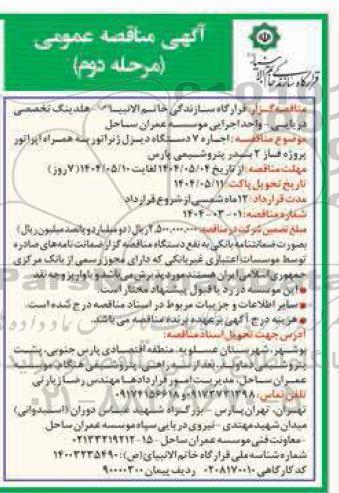 آگهی مناقصه عمومی
(مرحله دوم)
قرارگاه سازندگی خاتم الانبیاء
مناقصه‌گزار: قرارگاه سازندگی خاتم الانبیا - هلدینگ تخصصی
دریایی - واحد اجرایی موسسه عمران ساحل
موضوع مناقصه: اجاره ۷ دستگاه دیزل ژنراتور به همراه اپراتور
پروژه فاز ۲ بندر پتروشیمی پارس
مهلت مناقصه: از تاریخ ۱۴۰۴/۰۵/۰۴ لغایت ۱۴۰۴/۰۵/۱۰ (۷ روز)
تاریخ تحویل پاکت: ۱۴۰۴/۰۵/۱۱
مدت قرارداد: ۱۲ ماه شمسی از شروع قرارداد
شماره مناقصه: ۰۱-۰۳-۱۴۰۴
مبلغ تضمین شرکت در مناقصه: ۲,۵۰۰,۰۰۰,۰۰۰ ریال (دو میلیارد و پانصد میلیون ریال)
بصورت ضمانتنامه بانکی به نفع دستگاه مناقصه گزار ضمانت نامه‌های صادره
توسط موسسات اعتباری غیربانکی که دارای مجوز رسمی از بانک مرکزی
جمهوری اسلامی ایران هستند مورد پذیرش می باشد و یا واریز وجه نقد
این موسسه در رد یا قبول پیشنهاد مختار است.
سایر اطلاعات و جزییات مربوط در اسناد مناقصه درج شده است.
هزینه درج آگهی بر عهده برنده مناقصه می باشد.
آدرس جهت تحویل اسناد مناقصه:
بوشهر، شهرستان عسلویه، منطقه اقتصادی پارس جنوبی، پشت
پتروشیمی دماوند، بعد از راهسازی، پتروشیمی هنگام، موسسه
عمران ساحل، مدیریت امور قراردادها مهندس رضا زیارتی
تلفن تماس: ۰۹۱۷۳۷۳۱۳۹۸ و ۰۹۱۷۴۱۵۶۶۱۸
تهران، تهران پارس - بزرگراه شهید عباس دوران (استیدوانی)
میدان شهید مهتدی - نیروی دریایی سپاه موسسه عمران ساحل
- معاونت فنی موسسه عمران ساحل - ۱۵-۰۲۱۳۳۲۱۹۲۱۲
شماره شناسه ملی قرارگاه خاتم الانبیاء (ص): ۱۴۰۰۳۲۳۵۴۹۰
کد کارگاهی ۰۲۰۸۱۷۰۰۱۰ ردیف پیمان ۹۰۰۰۰۳۰۰